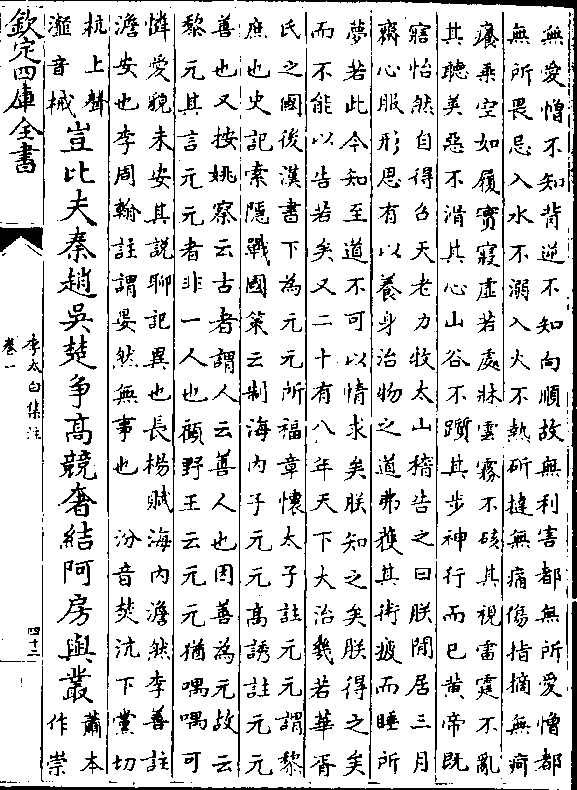 無愛憎不知背逆不知向順故無利害都無所愛憎都
無所畏忌入水不溺入火不熱斫撻無痛傷指摘無痟
癢乘空如履實寢虛若處牀雲霧不硋其視雷霆不亂
其聽美惡不滑其心山谷不躓其步神行而已黃帝既
寤怡然自得召天老力牧太山稽告之曰朕閒居三月
齋心服形思有以養身治物之道弗獲其術疲而睡所
夢若此今知至道不可以情求矣朕知之矣朕得之矣
而不能以告若矣又二十有八年天下大治幾若華胥
氏之國後漢書下為元元所福章懷太子註元元謂黎
庶也史記索隱戰國策云制海內子元元高誘註元元
善也又按姚察云古者謂人云善人也因善為元故云
黎元其言元元者非一人也顧野王云元元猶喁喁可
憐愛貌未安其說聊記異也長楊賦海內澹然李善註
澹安也李周翰註謂晏然無事也 汾音焚沆下黨切
杭上聲
瀣音械
豈比夫秦趙吳楚爭高競奢結阿房與叢
蕭本
作崇
欽定四庫全書
李太白集注
卷一
四十三